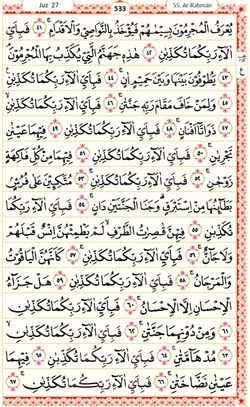 Juz 27 533 55. Ar-Raḥmān
يُعْرَفُ الْمُجْرِمُوْنَ بِسِيْمٰهُمْ فَيُؤْخَذُ بِالنَّوَاصِيْ وَالْاَقْدَامِ ۚ ﴿٤١﴾ فَبِاَيِّ
اٰلَآءِ رَبِّكُمَا تُكَذِّبٰنِ ﴿٤٢﴾ هٰذِهٖ جَهَنَّمُ الَّتِيْ يُكَذِّبُ بِهَا الْمُجْرِمُوْنَ ۘ ﴿٤٣﴾
يَطُوْفُوْنَ بَيْنَهَا وَبَيْنَ حَمِيْمٍ اٰنٍ ۚ ﴿٤٤﴾ فَبِاَيِّ اٰلَآءِ رَبِّكُمَا تُكَذِّبٰنِ ﴿٤٥﴾ ع
وَلِمَنْ خَافَ مَقَامَ رَبِّهٖ جَنَّتٰنِ ۚ ﴿٤٦﴾ فَبِاَيِّ اٰلَآءِ رَبِّكُمَا تُكَذِّبٰنِ ۙ ﴿٤٧﴾
ذَوَاتَآ اَفْنَانٍ ۚ ﴿٤٨﴾ فَبِاَيِّ اٰلَآءِ رَبِّكُمَا تُكَذِّبٰنِ ﴿٤٩﴾ فِيْهِمَا عَيْنٰنِ
تَجْرِيٰنِ ۚ ﴿٥٠﴾ فَبِاَيِّ اٰلَآءِ رَبِّكُمَا تُكَذِّبٰنِ ﴿٥١﴾ فِيْهِمَا مِنْ كُلِّ فَاكِهَةٍ
زَوْجٰنِ ۚ ﴿٥٢﴾ فَبِاَيِّ اٰلَآءِ رَبِّكُمَا تُكَذِّبٰنِ ﴿٥٣﴾ مُتَّكِـِٕيْنَ عَلٰى فُرُشٍۭ
بَطَآئِنُهَا مِنْ اِسْتَبْرَقٍ ۗ وَجَنَا الْجَنَّتَيْنِ دَانٍ ۚ ﴿٥٤﴾ فَبِاَيِّ اٰلَآءِ
رَبِّكُمَا تُكَذِّبٰنِ ﴿٥٥﴾ فِيْهِنَّ قٰصِرٰتُ الطَّرْفِ ۙ لَمْ يَطْمِثْهُنَّ اِنْسٌ قَبْلَهُمْ
وَلَا جَآنٌّ ۚ ﴿٥٦﴾ فَبِاَيِّ اٰلَآءِ رَبِّكُمَا تُكَذِّبٰنِ ۚ ﴿٥٧﴾ كَاَنَّهُنَّ الْيَاقُوْتُ
وَالْمَرْجَانُ ۚ ﴿٥٨﴾ فَبِاَيِّ اٰلَآءِ رَبِّكُمَا تُكَذِّبٰنِ ﴿٥٩﴾ هَلْ جَزَآءُ
الْاِحْسَانِ اِلَّا الْاِحْسَانُ ۚ ﴿٦٠﴾ فَبِاَيِّ اٰلَآءِ رَبِّكُمَا تُكَذِّبٰنِ ﴿٦١﴾
وَمِنْ دُوْنِهِمَا جَنَّتٰنِ ۚ ﴿٦٢﴾ فَبِاَيِّ اٰلَآءِ رَبِّكُمَا تُكَذِّبٰنِ ۙ ﴿٦٣﴾
مُدْهَآمَّتٰنِ ۚ ﴿٦٤﴾ فَبِاَيِّ اٰلَآءِ رَبِّكُمَا تُكَذِّبٰنِ ۚ ﴿٦٥﴾ فِيْهِمَا
عَيْنٰنِ نَضَّاخَتٰنِ ۚ ﴿٦٦﴾ فَبِاَيِّ اٰلَآءِ رَبِّكُمَا تُكَذِّبٰنِ ۚ ﴿٦٧﴾